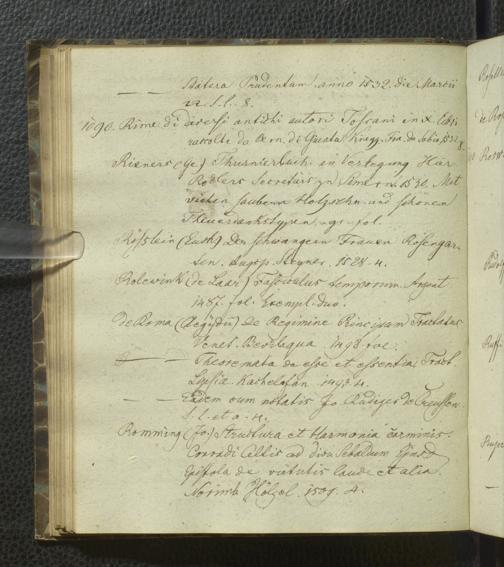 — — Patera Prudentum anno 1532. die Martii
22 s. l. 8.
1090. Rime di diversi antichi autori Toscani in X. libri
raccolte da Bern. di Giunta. Fra. da Sabio 1532. 8.
Rixners (Ge.) Thurnierbuch in Verlegung Hier
Rodlers Secretaris zu Simern 1530. Mit
vielen saubern Holzschn. und schönen
Theuerdankstypen. gr. fol.
Rösslein (Euch.) Den schwangern Frauen Rosengar-
ten. Augsp. Steyner. 1528. 4.
Rolewink (de Laer) Fasciculus temporum. Argent
1487. fol. Exempl. duo.
de Roma (Aegydii) De Regimine Principum Tractatus
Venet. Bevilaqua 1498. fol.
— — Theoremata de esse et essentia. Tract.
Lipsiae Kachelofen 1493. 4.
— — Eadem cum notatis Jo. Rudiger de
s. l. et a. 4.
Romming (Jo.) Structura et Harmonia carminis
Conradi Celtis ad diva Sebaldum Ejusd
Epistola de virtutis laude et alia.
Norimb Hölzel. 1509. 4.